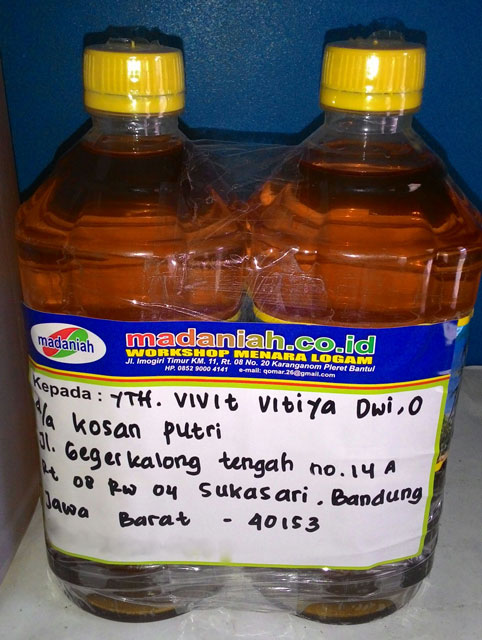 madaniah
madaniah.co.id
WORKSHOP MENARA LOGAM
Jl. Imogiri Timur KM. 11, Rt. 08 No. 20 Karanganom Pleret Bantul
HP. 0852 9000 4141 e-mail: qomar.26@gmail.com
Kepada : YTH. VIVIT VITIYA DWI.O
d/a kosan putri
Jl. Gegerkalong tengah no.14 A
Rt 08 Rw 04 Sukasari. Bandung
Jawa Barat - 40153